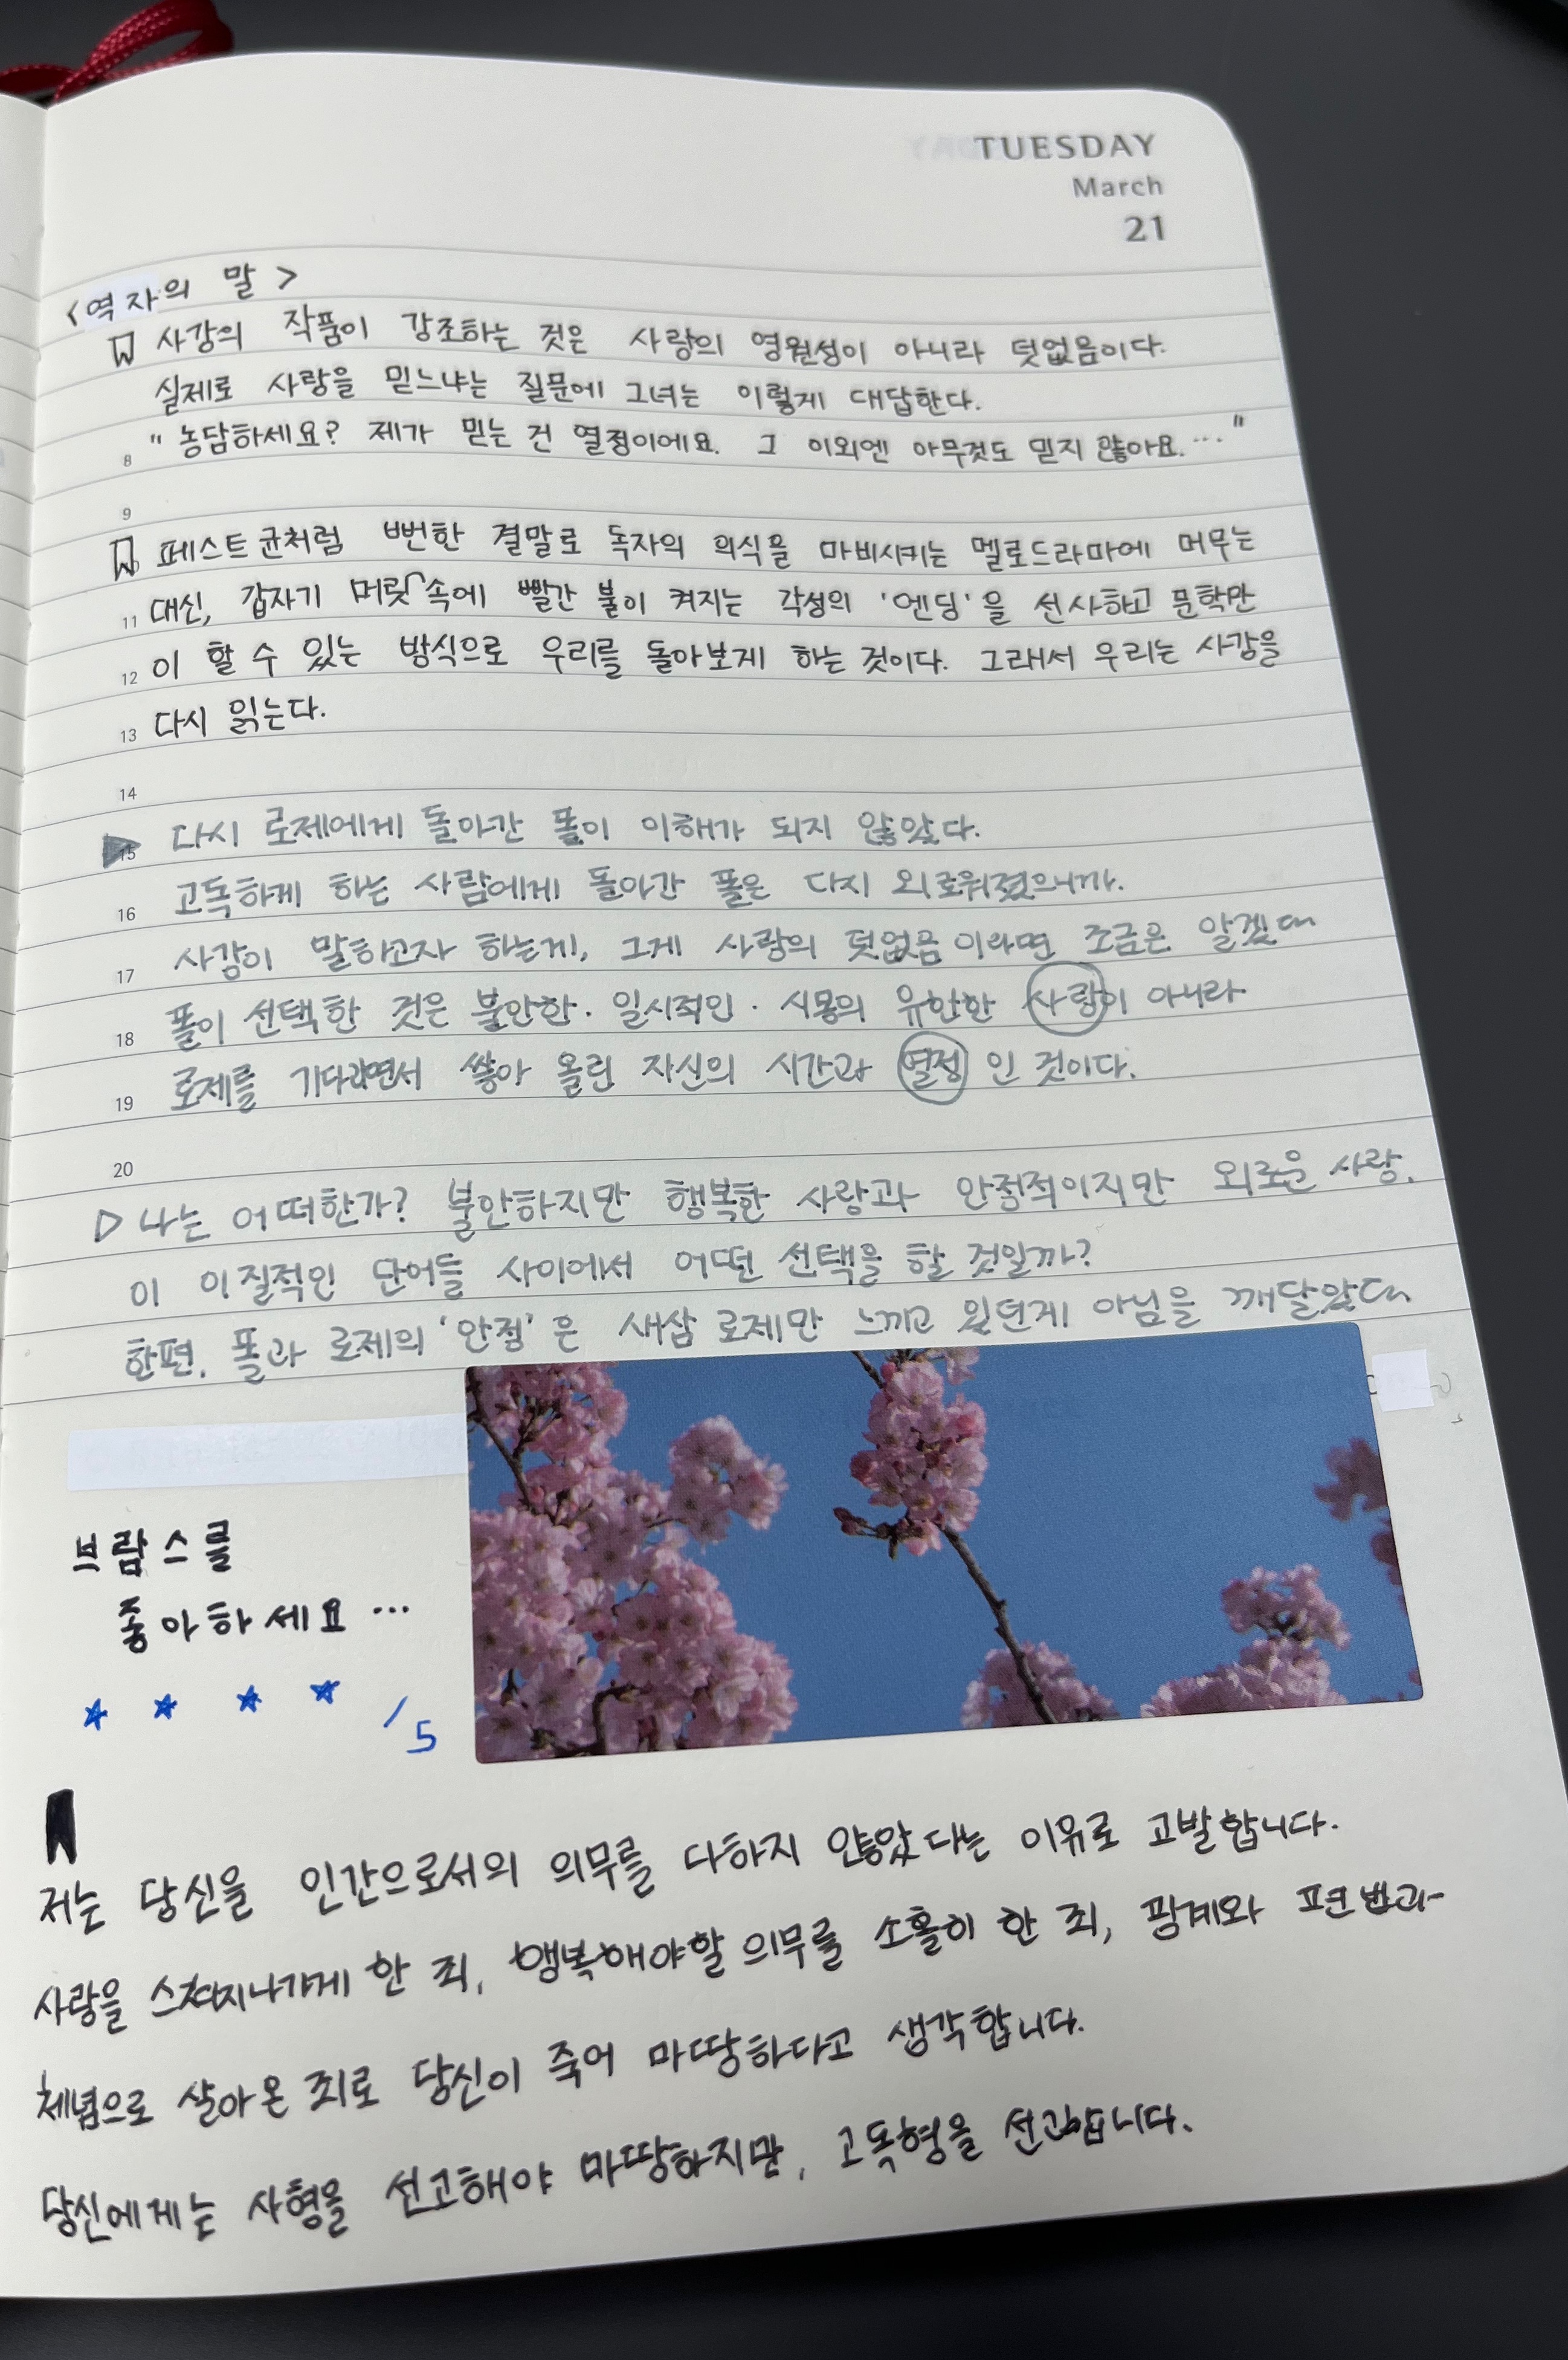 TUESDAY
March
21
<역자의 말>
사강의 작품이 강조하는 것은 사랑의 영원성이 아니라 덧없음이다.
실제로 사랑을 믿느냐는 질문에 그녀는 이렇게 대답한다.
8 "농담하세요? 제가 믿는 건 열정이에요. 그 이외엔 아무것도 믿지 않아요.…"
9
페스트균처럼 뻔한 결말로 독자의 의식을 마비시키는 멜로드라마에 머무는
11 대신, 갑자기 머릿속에 빨간 불이 켜지는 각성의 '엔딩'을 선사하고 문학만
12 이 할 수 있는 방식으로 우리를 돌아보게 하는 것이다. 그래서 우리는 사강을
13 다시 읽는다.
14
15 다시 로제에게 돌아간 폴이 이해가 되지 않았다.
16 고독하게 하는 사람에게 돌아간 폴은 다시 외로워졌으니까.
17 사강이 말하고자 하는게, 그게 사랑의 덧없음이라면 조금은 알겠다
18 폴이 선택한 것은 불안한·일시적인· 시몽의 유한한 사랑이 아니라
19 로제를 기다리면서 쌓아 올린 자신의 시간과 열정 인 것이다.
20
▷ 나는 어떠한가? 불안하지만 행복한 사랑과 안정적이지만 외로운 사랑.
이 이질적인 단어들 사이에서 어떤 선택을 할 것일까?
한편, 폴과 로제의 '안정'은 새삼 로제만 느끼고 있던게 아님을 깨달았다
브람스를
좋아하세요…
★ ★ ★ ★ /5
저는 당신을 인간으로서의 의무를 다하지 않았다는 이유로 고발합니다.
사랑을 스쳐지나가게 한 죄, 행복해야할 의무를 소홀히 한 죄, 핑계와 편법과
체념으로 살아온 죄로 당신이 죽어 마땅하다고 생각합니다.
당신에게는 사형을 선고해야 마땅하지만, 고독형을 선고합니다.